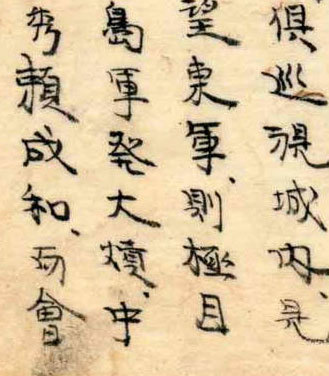 俱巡視城内、是
望東軍、則極目
島軍発大熕、中
秀頼成和、會